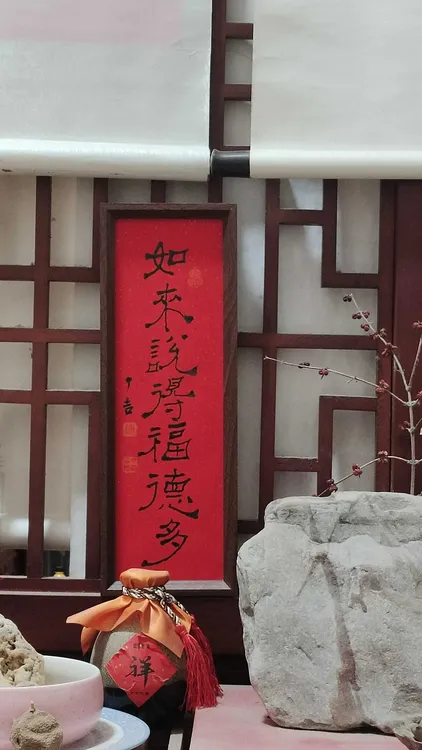 如來說得福德多
祥